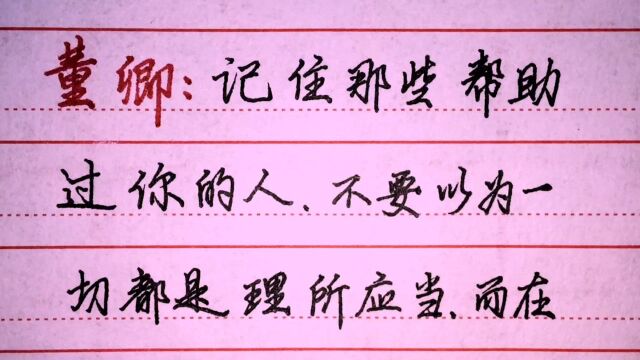 董卿:记住那些帮助
过你的人、不要以为一
切都是理所应当、而在